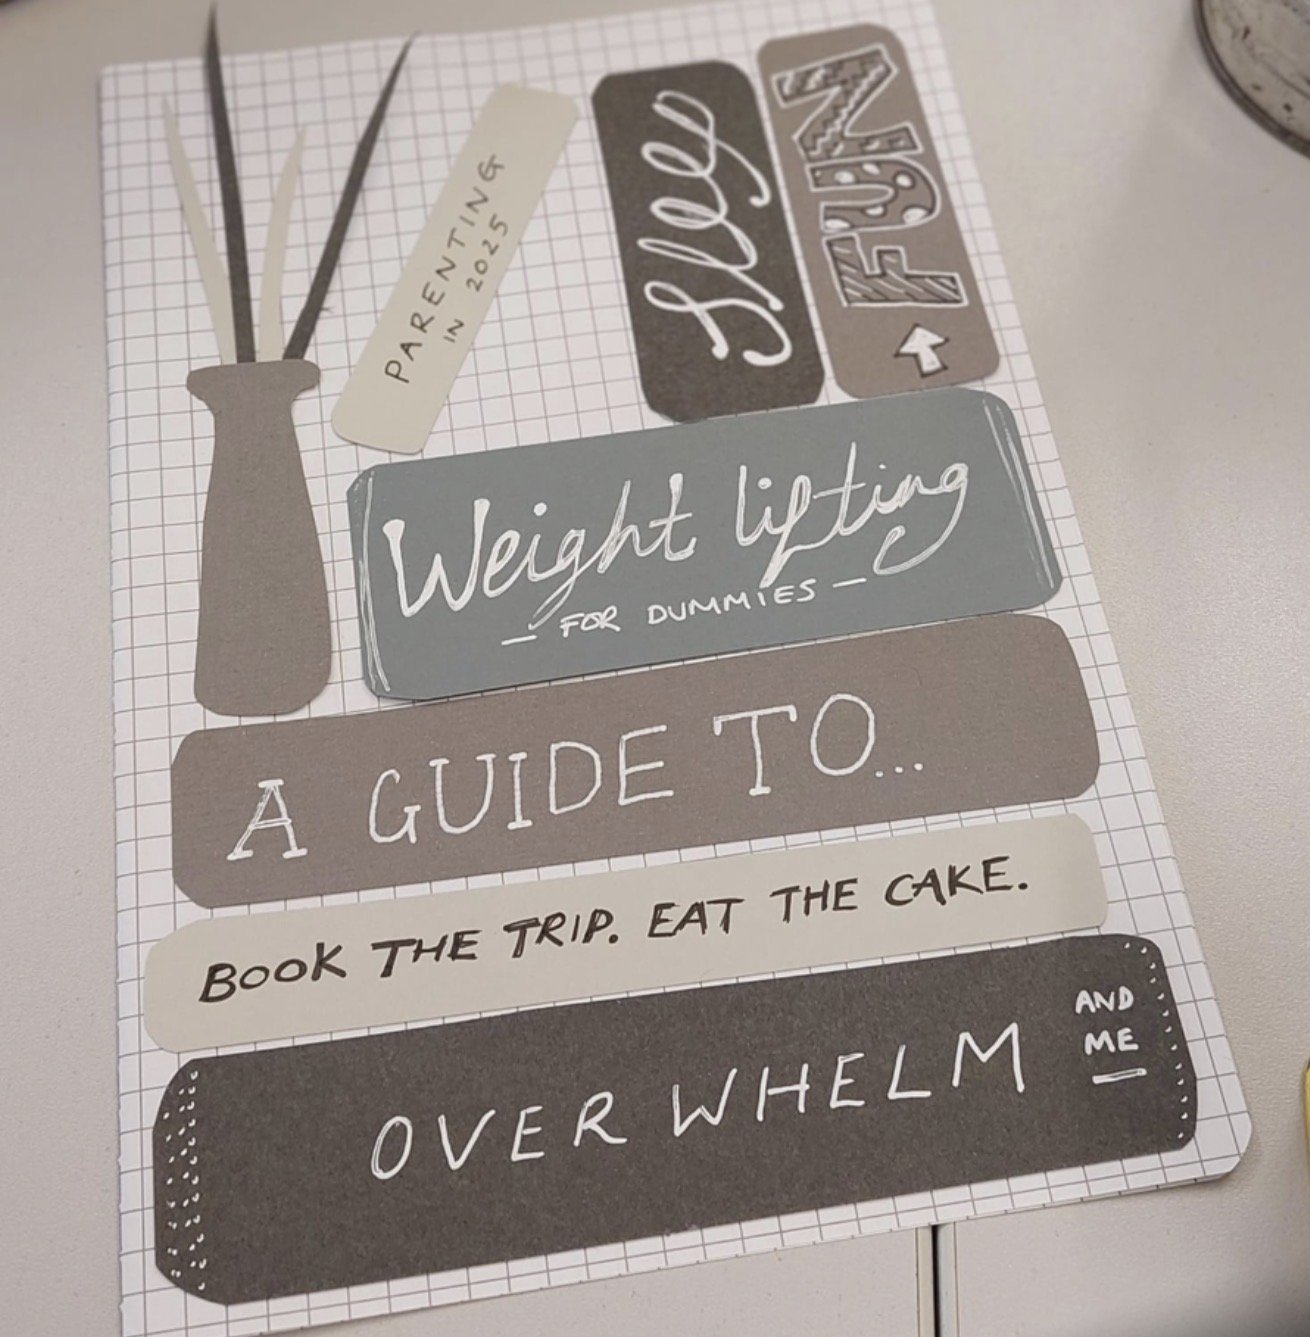 PARENTING
IN 2025
Sleep
FUN
Weight lifting
— FOR DUMMIES —
A GUIDE TO...
BOOK THE TRIP. EAT THE CAKE.
OVER WHELM
AND
ME